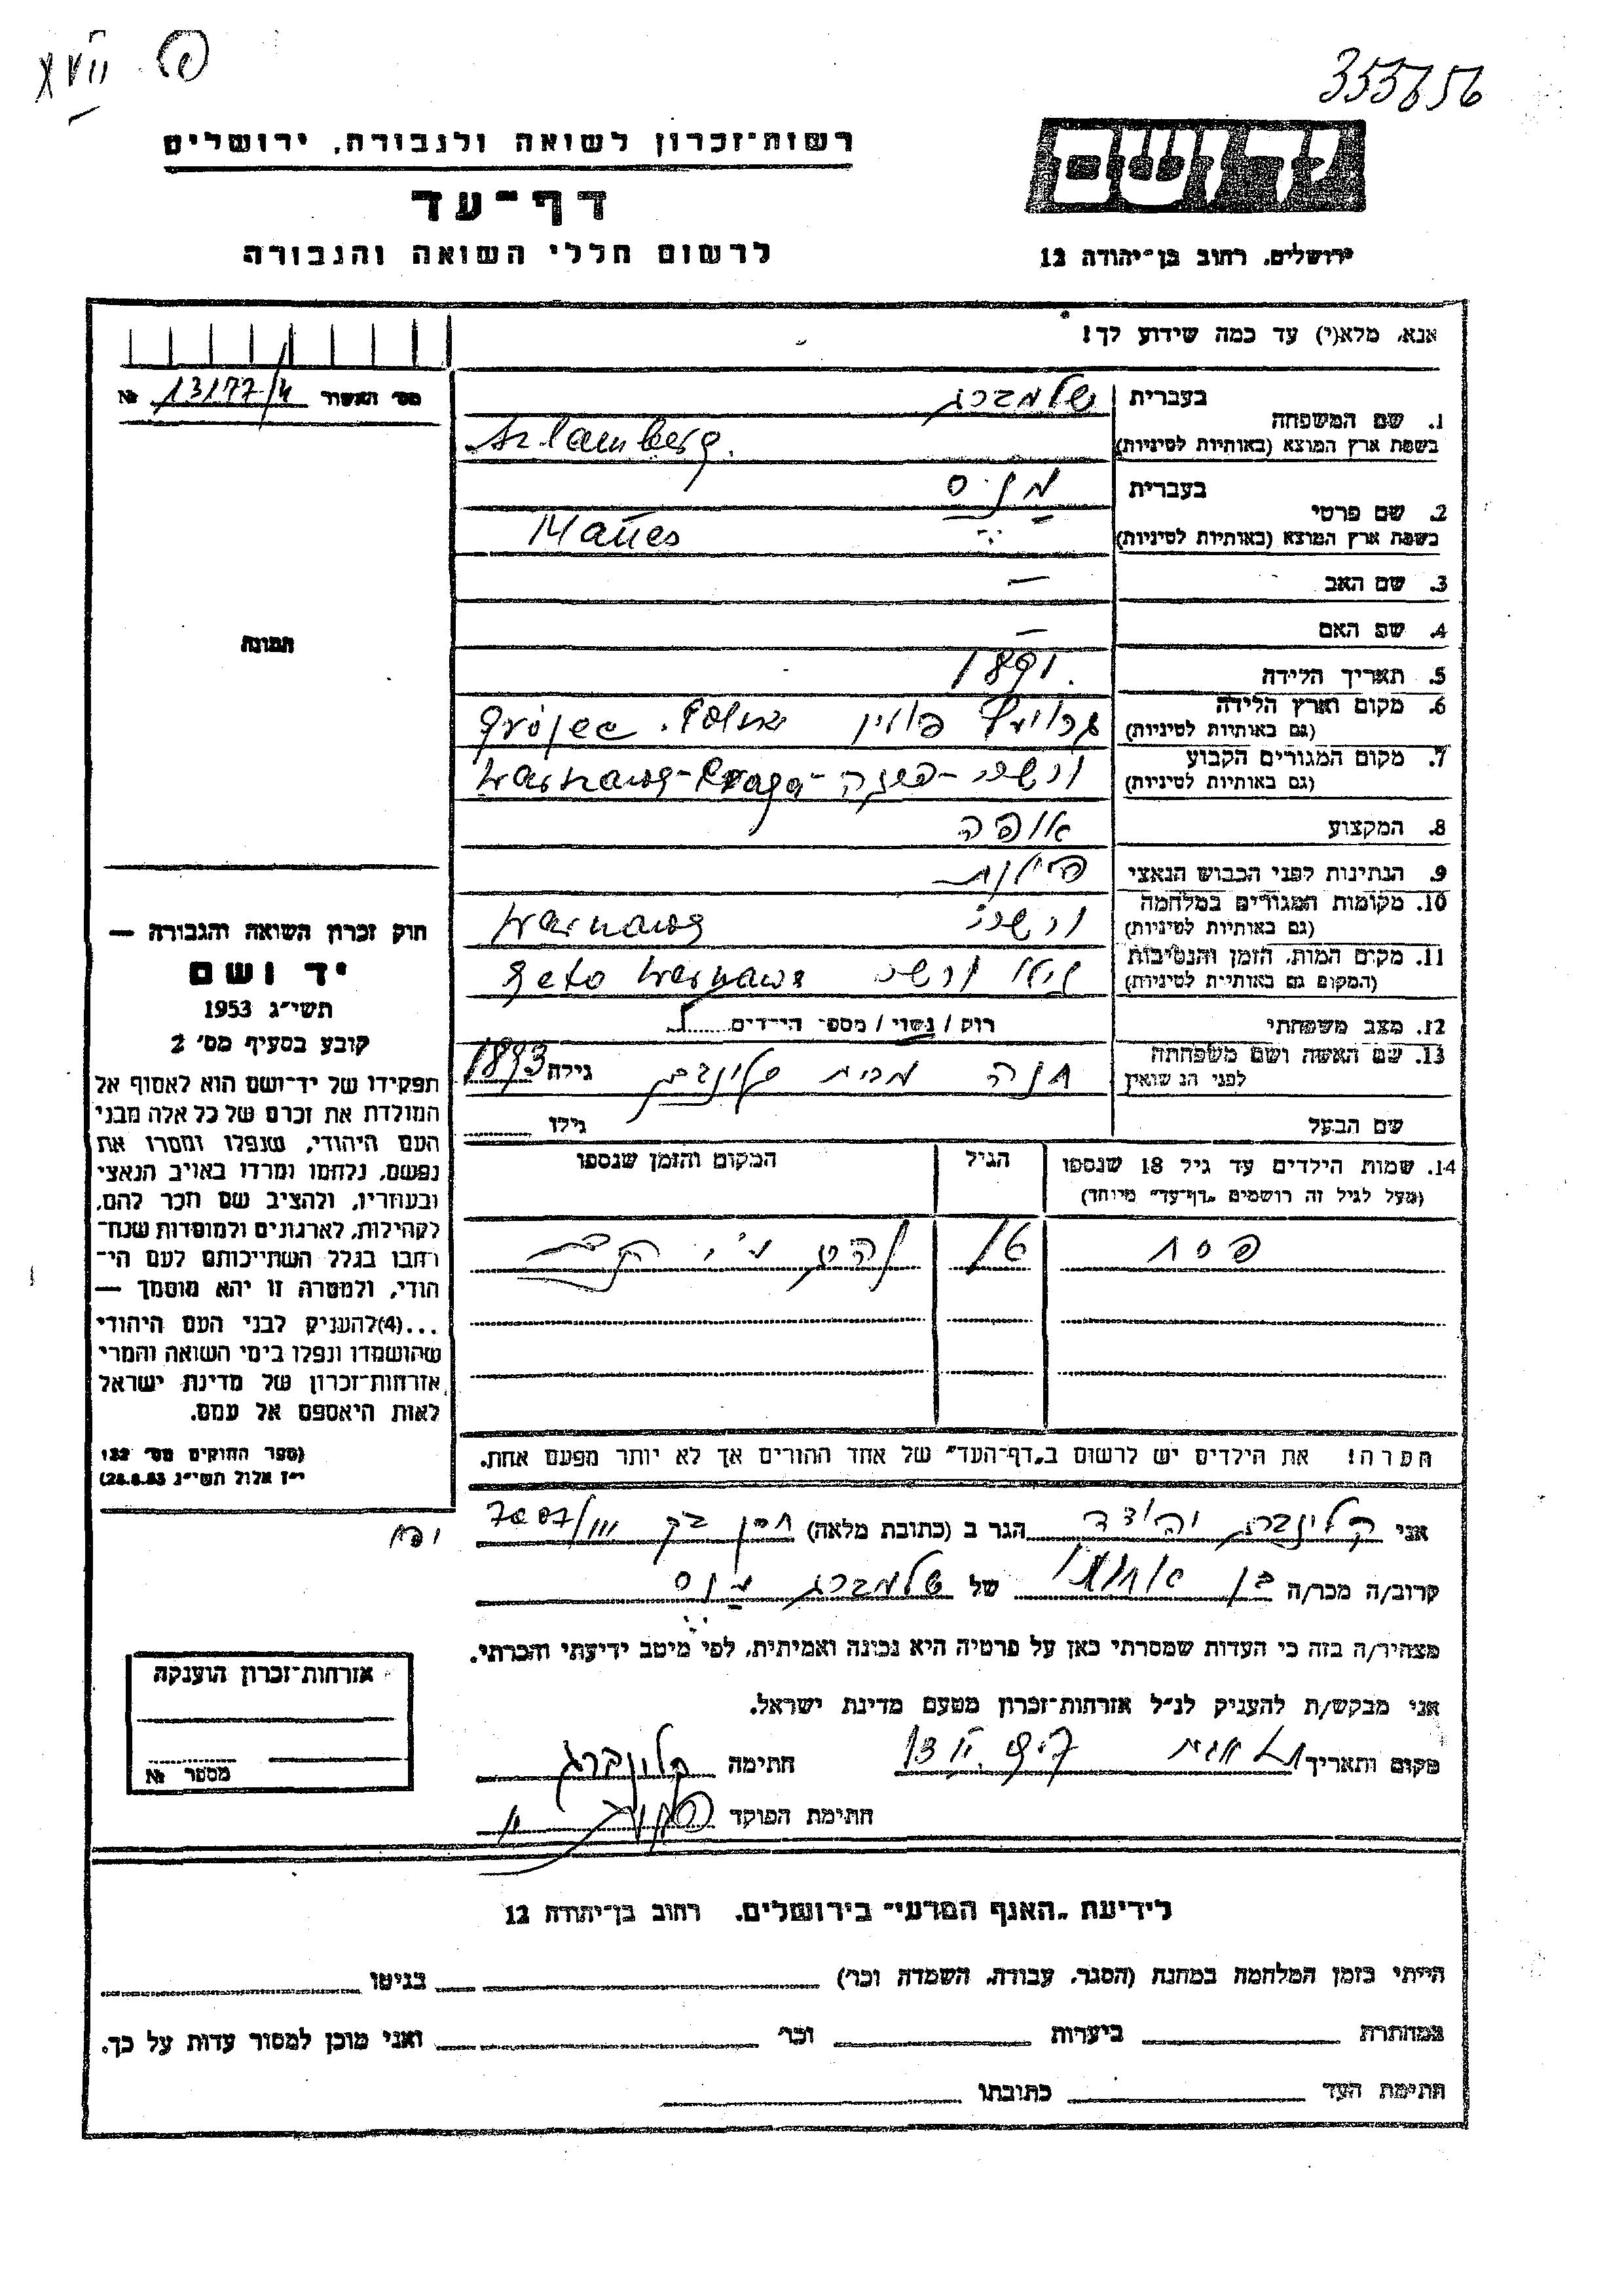 XVII פ
353656
רשות־זכרון לשואה ולגבורה, ירושלים
דף־עד
לרשום חללי השואה והגבורה
יד ושם
ירושלים, רחוב בן־יהודה 12
אנא, מלא(י) עד כמה שידוע לך!
מס׳ האשור 13177/4 №
1. שם המשפחה
בעברית שלמברג
בשפת ארץ המוצא (באותיות לטיניות) Szlamberg.
2. שם פרטי
בעברית מניס
בשפת ארץ המוצא (באותיות לטיניות) Manes
3. שם האב —
4. שם האם —
5. תאריך הלידה 1891
6. מקום וארץ הלידה
(גם באותיות לטיניות) פולין Grójec. Polska
7. מקום המגורים הקבוע
(גם באותיות לטיניות) ורשה-פרגה- Warszawa-Praga
8. המקצוע אופה
9. הנתינות לפני הכבוש הנאצי פולנית
10. מקומות המגורים במלחמה
(גם באותיות לטיניות) ורשה Warszawa
11. מקום המות, הזמן והנסיבות
(המקום גם באותיות לטיניות) גיטו ורשה Geto Warszawa
12. מצב משפחתי רווק / נשוי / מספר הילדים
13. שם האשה ושם משפחתה
לפני הנשואין חנה מבית קלינברג גילה 1893
שם הבעל גילו
14. שמות הילדים עד גיל 18 שנספו הגיל המקום והזמן שנספו
(מעל לגיל זה רושמים „דף־עד" מיוחד)
פסח
הערה! את הילדים יש לרשום ב„דף־העד" של אחד ההורים אך לא יותר מפעם אחת.
תמונה
חוק זכרון השואה והגבורה —
יד ושם
תשי״ג 1953
קובע בסעיף מס׳ 2
תפקידו של יד־ושם הוא לאסוף אל
המולדת את זכרם של כל אלה מבני
העם היהודי, שנפלו ומסרו את
נפשם, נלחמו ומרדו באויב הנאצי
ובעוזריו, ולהציב שם וזכר להם,
לקהילות, לארגונים ולמוסדות שנח־
רבו בגלל השתייכותם לעם הי־
הודי, ולמטרה זו יהא מוסמך —
...(4)להעניק לבני העם היהודי
שהושמדו ונפלו בימי השואה והמרי
אזרחות־זכרון של מדינת ישראל
לאות היאספם אל עמם.
(ספר החוקים מס׳ 132
י״ז אלול תשי״ג 28.8.53)
אני קלינברג יהודה הגר ב (כתובת מלאה)
קרוב/ה מכר/ה בן של שלמברג מניס
מצהיר/ה בזה כי העדות שמסרתי כאן על פרטיה היא נכונה ואמיתית, לפי מיטב ידיעתי והכרתי.
אני מבקש/ת להעניק לנ״ל אזרחות־זכרון מטעם מדינת ישראל.
מקום ותאריך חתימה קלינברג
חתימת הפוקד
אזרחות־זכרון הוענקה
מספר №
לידיעת „האגף המדעי" בירושלים, רחוב בן־יהודה 12
הייתי בזמן המלחמה במחנה (הסגר, עבודה, השמדה וכו׳) בגיטו
במחתרת ביערות וכו׳ ואני מוכן למסור עדות על כך.
חתימת העד כתובתו